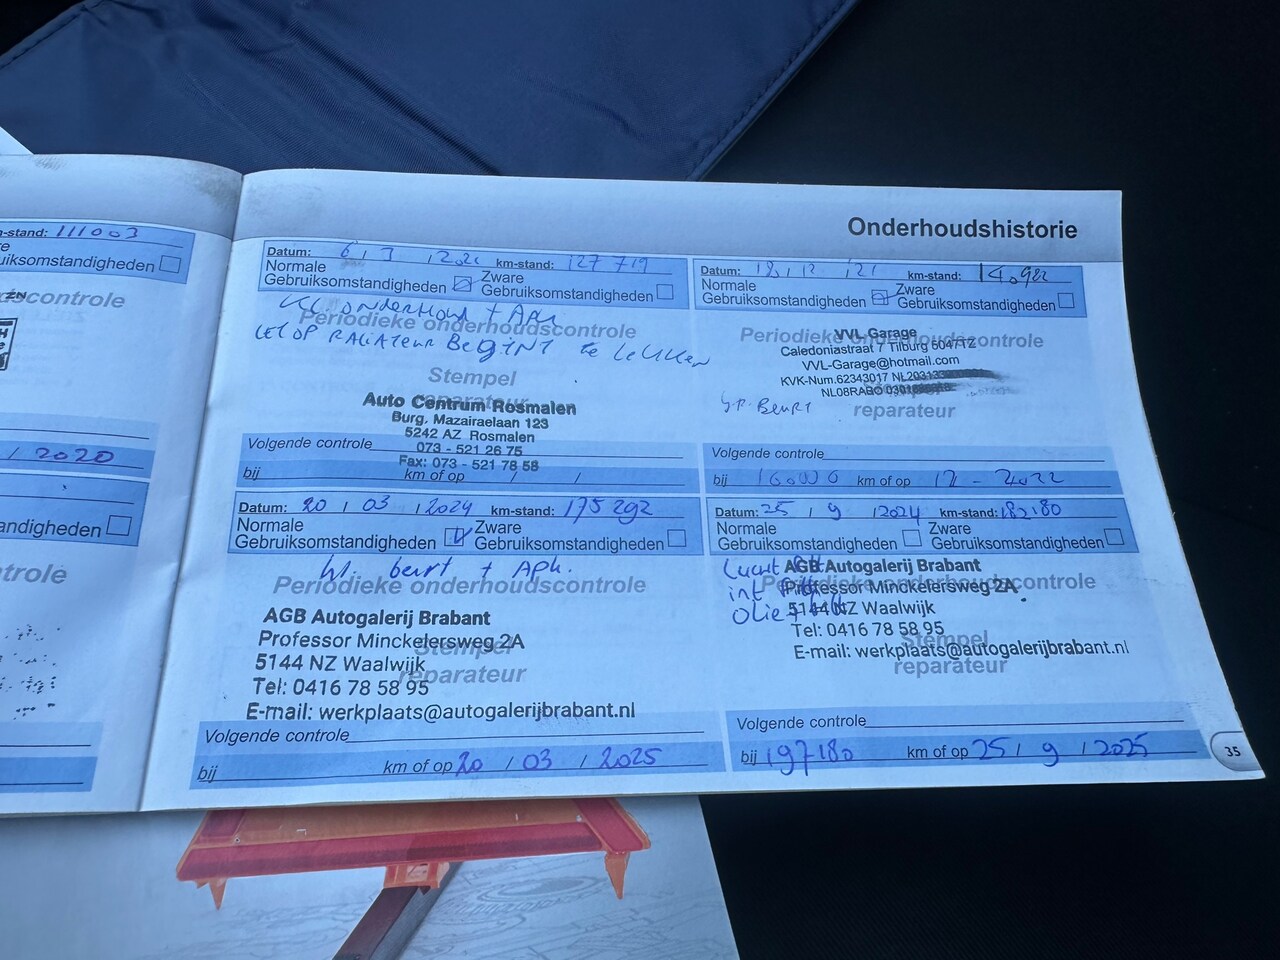 Onderhoudshistorie
km-stand: 111003
Gebruiksomstandigheden
2020
Datum: 6 / 3 / km-stand: 127 719
Normale Gebruiksomstandigheden Zware Gebruiksomstandigheden
onderhoud + Apk
Periodieke onderhoudscontrole
LET OP RADIATEUR BEGINT te LEKKEN
Stempel
reparateur
Auto Centrum Rosmalen
Burg. Mazairaelaan 123
5242 AZ Rosmalen
073 - 521 26 75
Fax: 073 - 521 78 58
Volgende controle
bij km of op / /
Datum: km-stand:
Normale Gebruiksomstandigheden Zware Gebruiksomstandigheden
Periodieke onderhoudscontrole
VVL-Garage
Caledoniastraat 7 Tilburg 5047TZ
VVL-Garage@hotmail.com
KVK-Num.62343017
NL08RABO
Beurt
reparateur
Volgende controle
bij km of op 12 - 2022
Datum: 20 / 03 / 2024 km-stand: 175 292
Normale Gebruiksomstandigheden Zware Gebruiksomstandigheden
beurt + APK.
Periodieke onderhoudscontrole
AGB Autogalerij Brabant
Professor Minckelersweg 2A
5144 NZ Waalwijk
Stempel
reparateur
Tel: 0416 78 58 95
E-mail: werkplaats@autogalerijbrabant.nl
Volgende controle
bij km of op 20 / 03 / 2025
Datum: 25 / 9 / 2024 km-stand: 182180
Normale Gebruiksomstandigheden Zware Gebruiksomstandigheden
Periodieke onderhoudscontrole
AGB Autogalerij Brabant
Professor Minckelersweg 2A
5144 NZ Waalwijk
Tel: 0416 78 58 95
E-mail: werkplaats@autogalerijbrabant.nl
Stempel
reparateur
Volgende controle
bij 197180 km of op 25 / 9 / 2025
35